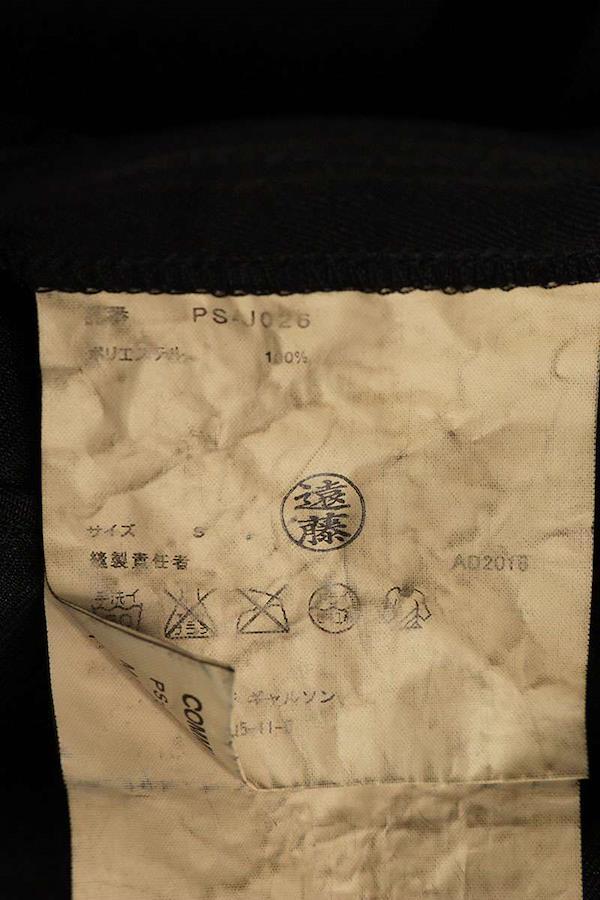 品番 PS-J026
ポリエステル 100%
遠藤
サイズ S
縫製責任者 AD2016
手洗イ
エンソ
ギャルソン
COMM
PS